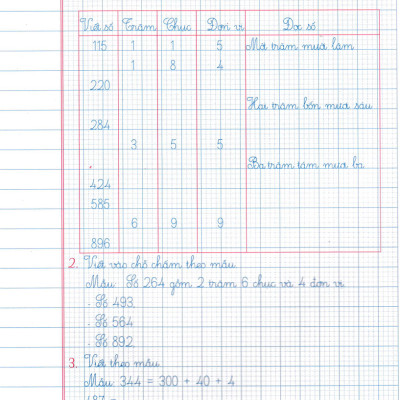 Viết số Trăm Chục Đơn vị Đọc số
115 1 1 5 Một trăm mười lăm
1 8 4
220
Hai trăm bốn mươi sáu
284
3 5 5
Ba trăm tám mươi ba
424
585
6 9 9
896
2. Viết vào chỗ chấm theo mẫu
Mẫu Số 264 gồm 2 trăm 6 chục và 4 đơn vị
- Số 493
- Số 564
- Số 892
3. Viết theo mẫu
Mẫu 344 = 300 + 40 + 4